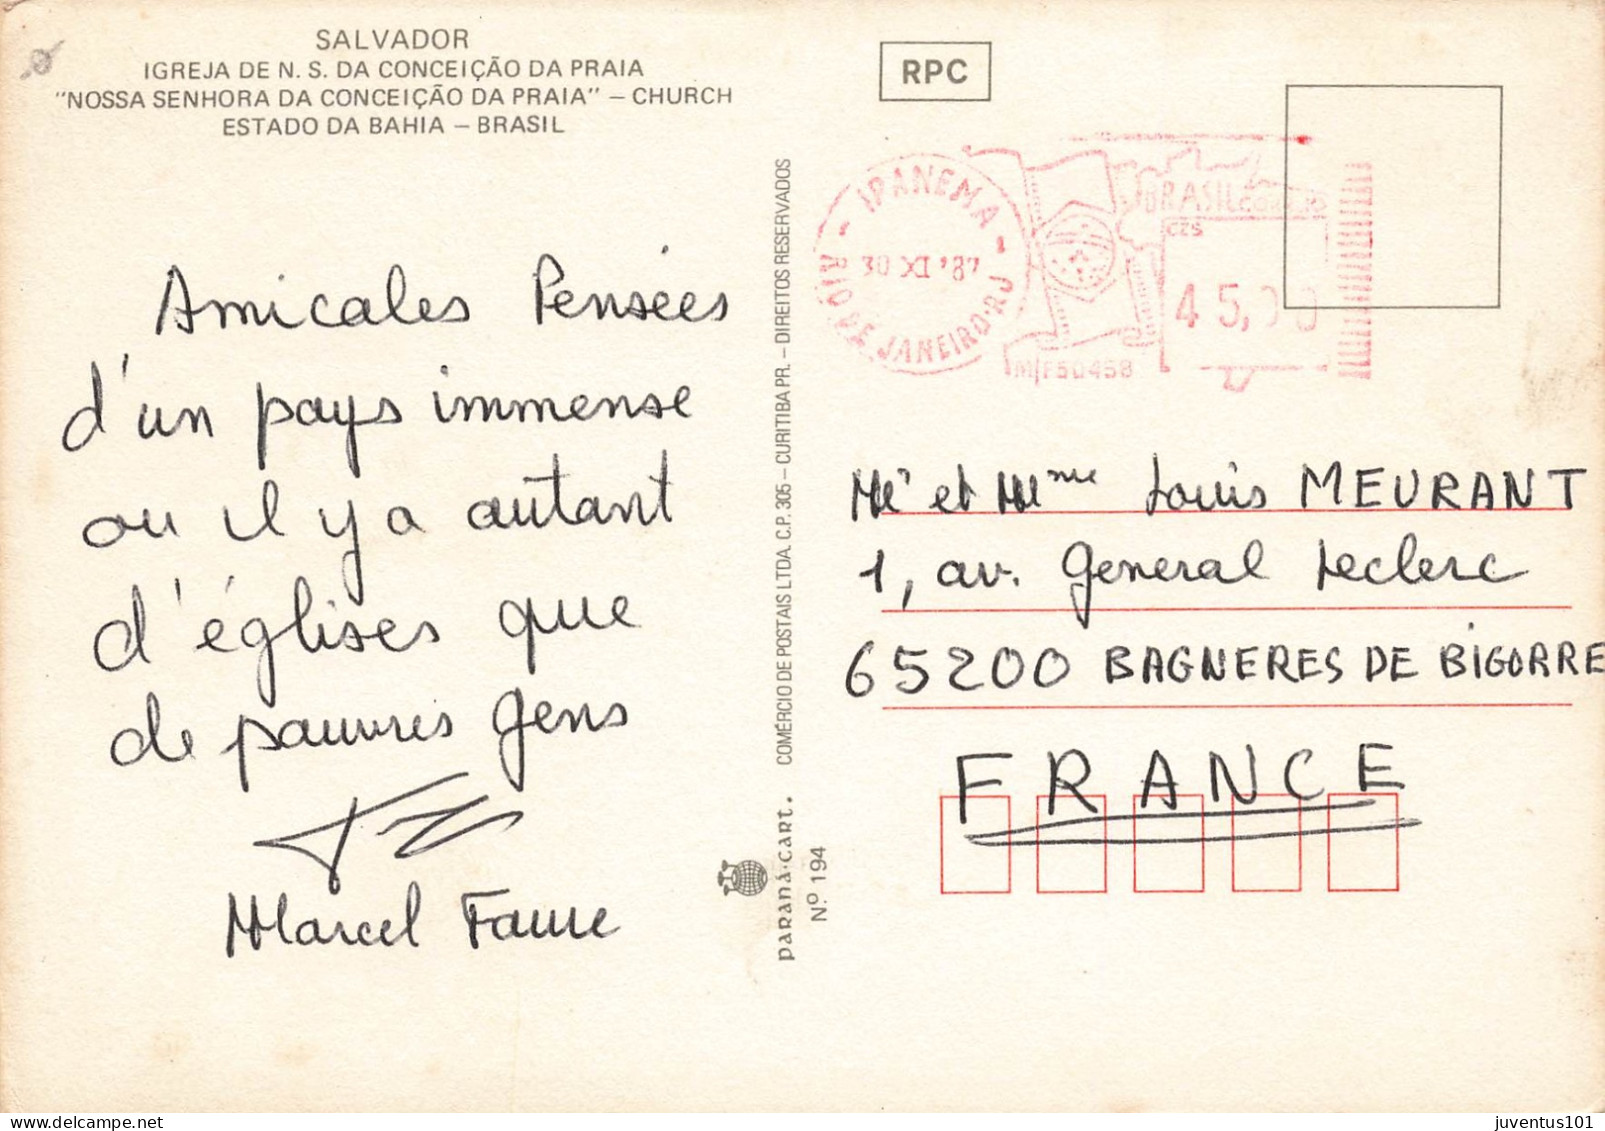 SALVADOR
IGREJA DE N. S. DA CONCEIÇÃO DA PRAIA
"NOSSA SENHORA DA CONCEIÇÃO DA PRAIA" – CHURCH
ESTADO DA BAHIA – BRASIL
Amicales Pensées
d'un pays immense
ou il y a autant
d'églises que
de pauvres gens
Marcel Faure
COMÉRCIO DE POSTAIS LTDA. C.P. 305 – CURITIBA PR. – DIREITOS RESERVADOS
paraná-cart.
Nº 194
RPC
IPANEMA
30 XI '87
RIO DE JANEIRO-RJ
BRASIL CORREIO
CZ$
45,00
M/F50458
Mr et Mme Louis MEURANT
1, av. General Leclerc
65200 BAGNERES DE BIGORRE
FRANCE
juventus101